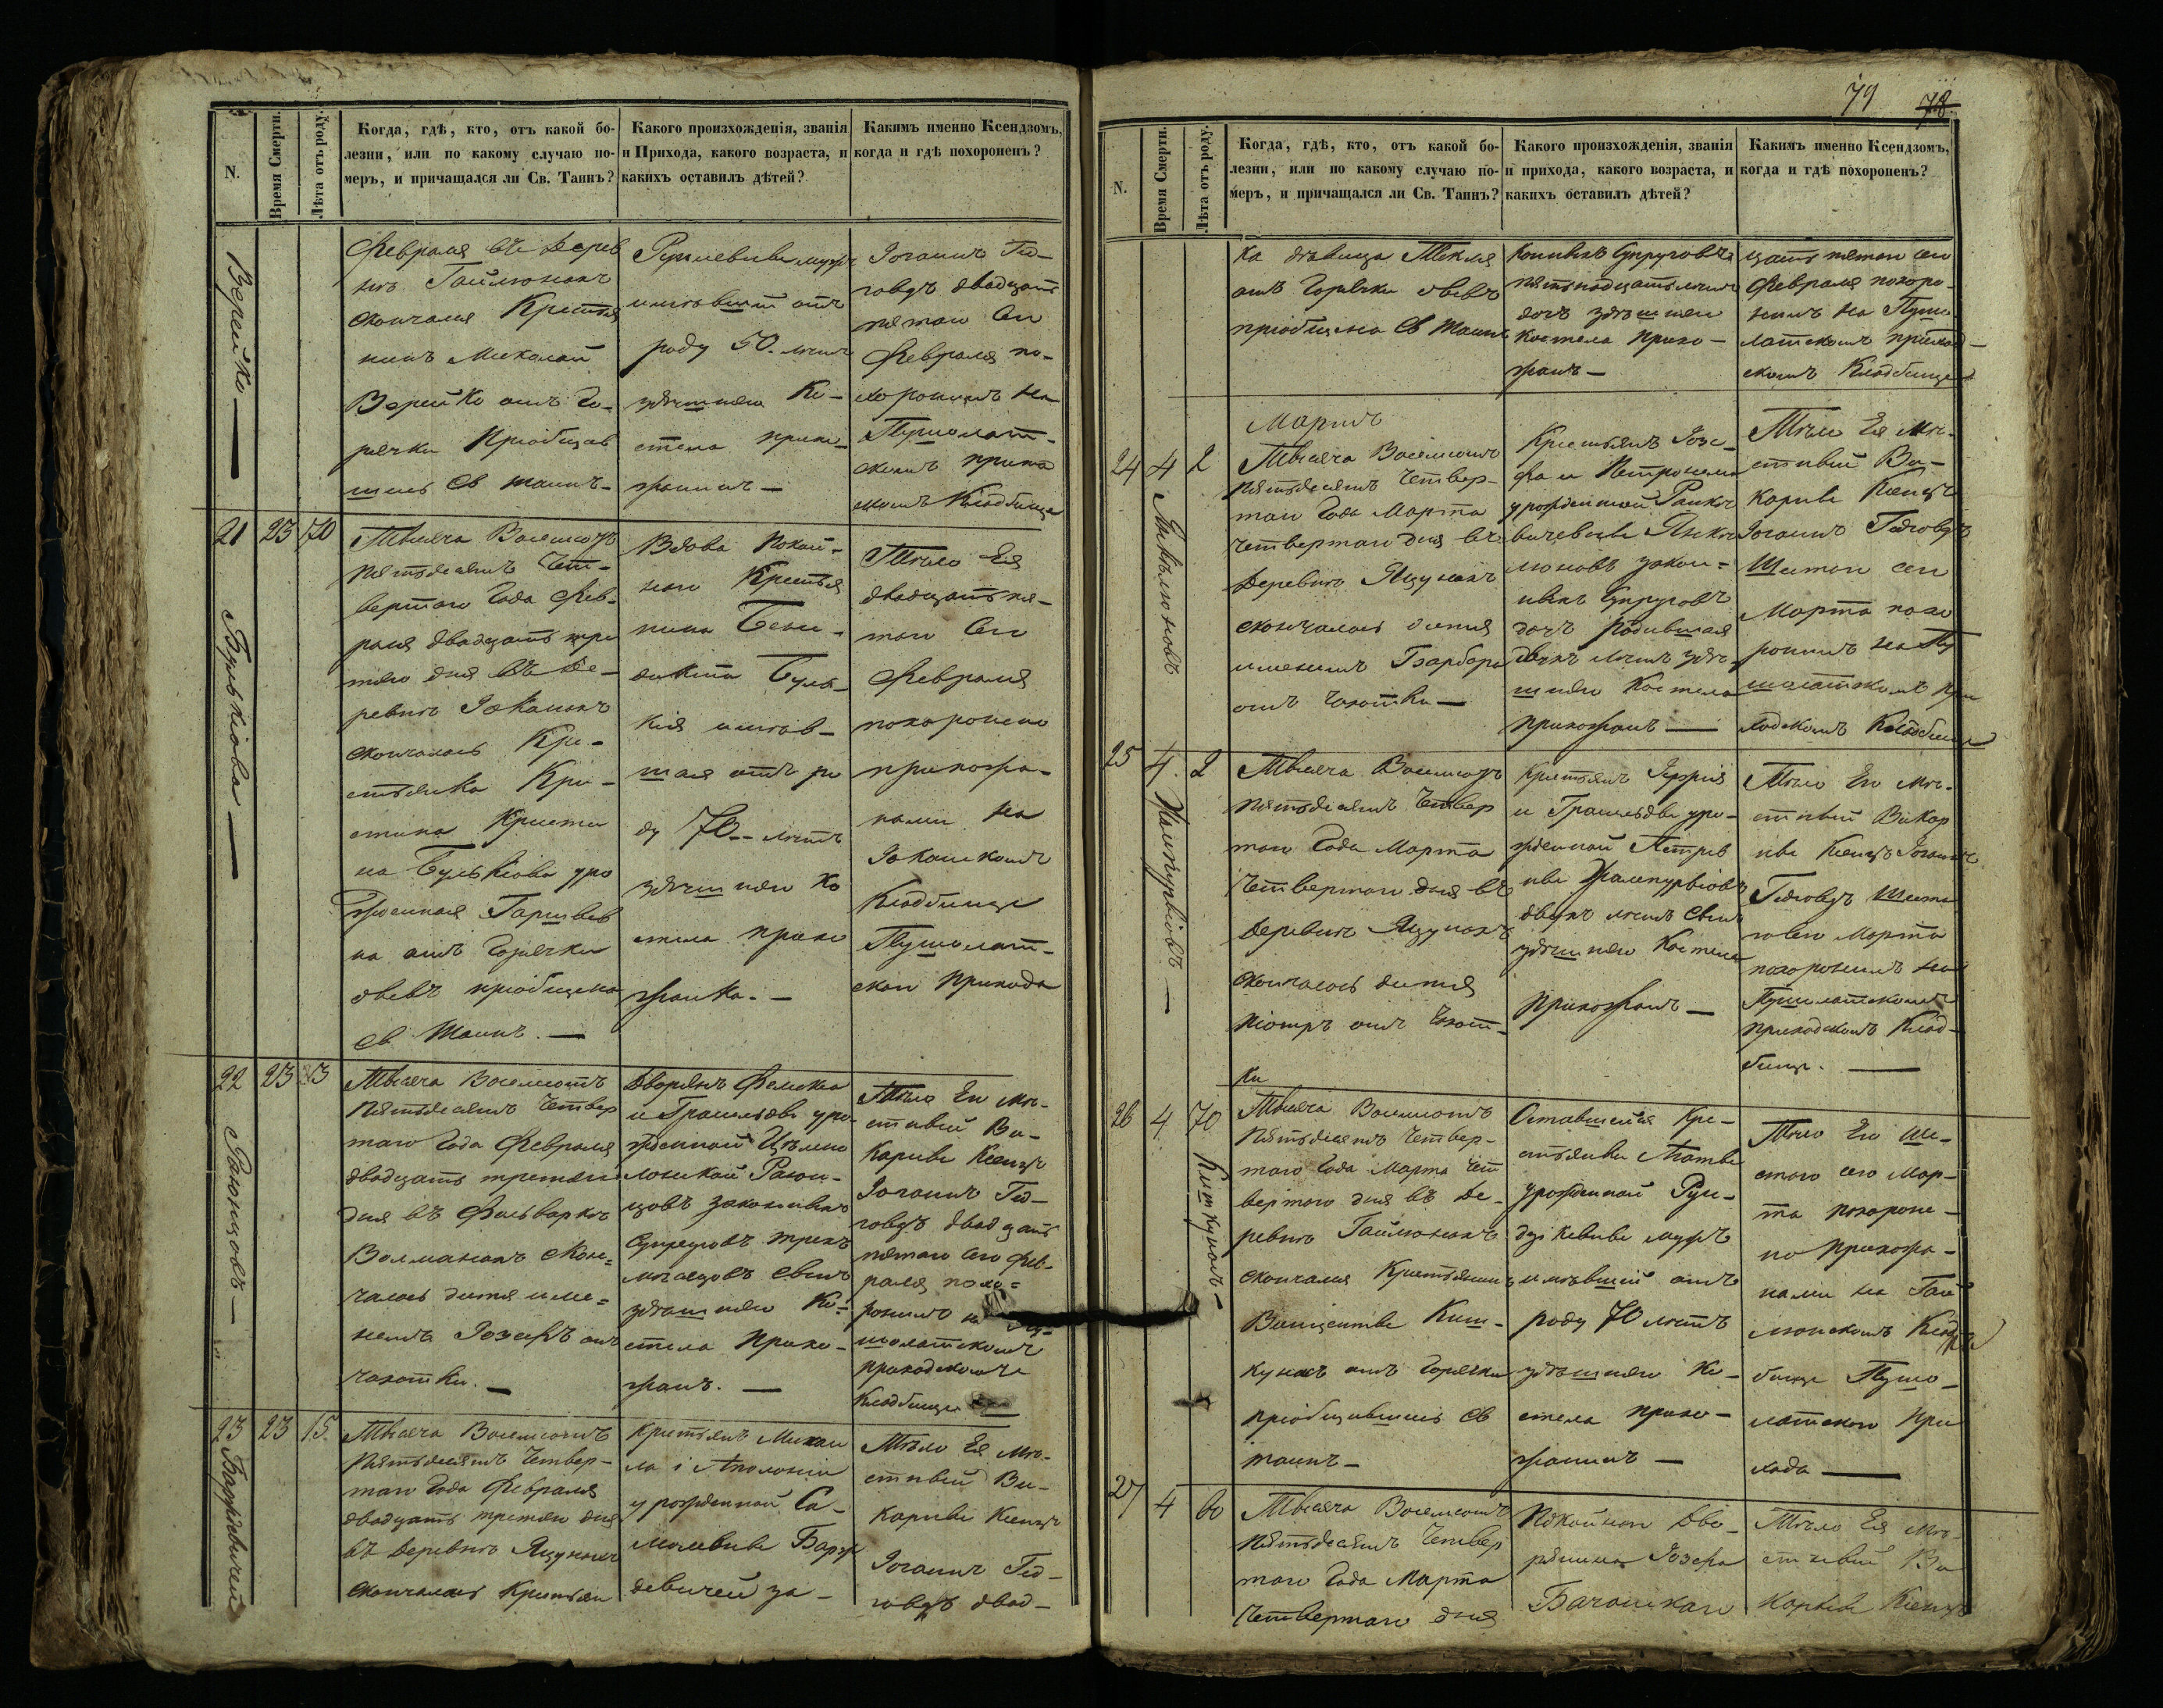 N.
Время Смерти.
Лѣта отъ роду.
Когда, гдѣ, кто, отъ какой бо-
лезни, или по какому случаю по-
меръ, и причащался ли Св. Таинъ?
Какого произхожденія, званія
и Прихода, какого возраста, и
какихъ оставилъ дѣтей?
Какимъ именно Ксендзомъ,
когда и гдѣ похороненъ?
Верейко
Февраля въ Дерев
нѣ Гайлюнахъ
скончался Крестья
нинъ Миколай
Верейко отъ Го-
рячки Пріобщав
шись Св таинъ-
мужъ
имѣвшій отъ
роду 50. лѣтъ
здѣшняго Ко-
стела прихо-
жанинъ —
Іоганнъ Гед-
говдъ двадцать
пятаго Сего
Февраля по-
хоронилъ на
Пушолат-
скомъ прихо
скомъ Кладбище
21
23
70
Булькіова
Тысяча Восемсотъ
Пятьдесятъ Чет-
вертаго Года Фев-
раля двадцать тре
тяго дня въ Де-
ревнѣ Іоканахъ
скончалась Кре-
стьянка Кри-
стина
на Булькіова уро
жденная
на отъ Горячки
овевъ пріобщена
Св Таинъ. —
Вдова Покой-
наго Крестья
нина Бене-
дикта Буль-
кія имѣв-
шая отъ ро
ду 70.- лѣтъ
здѣшняго Ко
стела прихо
жанка. —
Тѣло Ея
двадцать пя-
таго Сего
Февраля
похоронено
прихожа-
нами на
Іоканскомъ
Кладбище
Пушолат-
скаго Прихода
22
23
3
Раюнцовъ
Тысяча Восемсотъ
Пятьдесятъ Четвер
таго Года Февраля
двадцать третяго
дня въ Фольваркѣ
Волманахъ скон=
чалось дитя име=
немъ Іозефъ отъ
чахотки. —
Дворянъ Феликса
и уро-
жденной
Раюн-
цовъ законныхъ
Супруговъ трехъ
мѣсяцовъ сынъ
здѣшняго Ко-
стела Прихо-
жанъ. —
Тѣло Его мѣ-
стный Ви-
карный Ксендзъ
Іоганнъ Гед-
говдъ двадцать
пятаго сего Фев-
раля похо=
ронилъ на Пу-
шолатскомъ
приходскомъ
Кладбище
23
23
15.
Барждевичей
Тысяча Восемсотъ
Пятьдесятъ Четвер-
таго Года Февраля
двадцать третяго дня
въ Деревнѣ Яцунахъ
скончалась Крестьян
Крестьянъ Михаи
ла і Аполоніи
урожденной Са-
Барж
девичей за-
Тѣло Ея мѣ-
стный Ви-
карный Ксендзъ
Іоганнъ Гед-
говдъ двад-
79
78.
N.
Время Смерти.
Лѣта отъ роду.
Когда, гдѣ, кто, отъ какой бо-
лезни, или по какому случаю по-
меръ, и причащался ли Св. Таинъ?
Какого произхожденія, званія
и прихода, какого возраста, и
какихъ оставилъ дѣтей?
Какимъ именно Ксендзомъ,
когда и гдѣ похороненъ?
ка дѣвица Текля
отъ Горячки овевъ
пріобщена Св таинъ
конныхъ Супруговъ
пятьнадцать лѣтъ
дочь здѣшняго
костела прихо-
жанъ —
цать пятаго сего
Февраля похоро-
нилъ на Пушо
латскомъ приход-
скомъ Кладбище
Мартъ
24
4
2
Тысяча Восемсотъ
Пятьдесятъ Четвер-
таго Года Марта
Четвертаго дня въ
Деревнѣ Яцунахъ
скончалась дитя
именемъ Барбара
отъ чахотки —
Крестьянъ Іозе-
фа и Петронели
урожденной
закон=
ныхъ Супруговъ
дочь родившая
двухъ лѣтъ здѣ-
шняго Костела
прихожанъ —
Тѣло Ея мѣ-
стный Ви-
карный Ксендзъ
Іоганнъ Гедговдъ
Шестаго сего
Марта похо
ронилъ на Пу
шолатскомъ при
ходскомъ Кладбище
25
4.
2
Тысяча Восемсотъ
Пятьдесятъ Четвер
таго Года Марта
Четвертаго дня въ
Деревнѣ Яцунахъ
скончалось дитя
Піотръ отъ Чахот-
ки
Крестьянъ
и уро-
жденной
двухъ лѣтъ сынъ
здѣшняго Костела
Прихожанъ —
Тѣло Его мѣ-
стный Викар
ный Ксендзъ Іоганнъ
Гедговдъ Шеста
го сего Марта
похоронилъ на
Пушолатскомъ
приходскомъ Клад-
бище. —
26
4
70
Кишкунасъ
Тысяча Восемсотъ
Пятьдесятъ Четвер-
таго Года Марта Чет
вертаго дня въ Де-
ревнѣ Гайлюнахъ
скончался Крестьянинъ
Винцентый Киш-
кунасъ отъ Горячки
пріобщившись Св
таинъ —
Оставшейся Кре-
стьянки Агаты
урожденной
мужъ
имѣвшій отъ
роду 70 лѣтъ
здѣшняго Ко-
стела прихо-
жанинъ —
Тѣло Его Ше-
стаго сего Мар-
та похороне-
но Прихожа-
нами на Гай
люнскомъ Клад
бище Пушо-
латскаго При
хода —
27
4
60
Тысяча Восемсотъ
Пятьдесятъ Четвер
таго Года Марта
Четвертаго дня
Покойнаго Дво-
рянина Іозефа
Тѣло Ея мѣ-
стный Ви
карный Ксендзъ